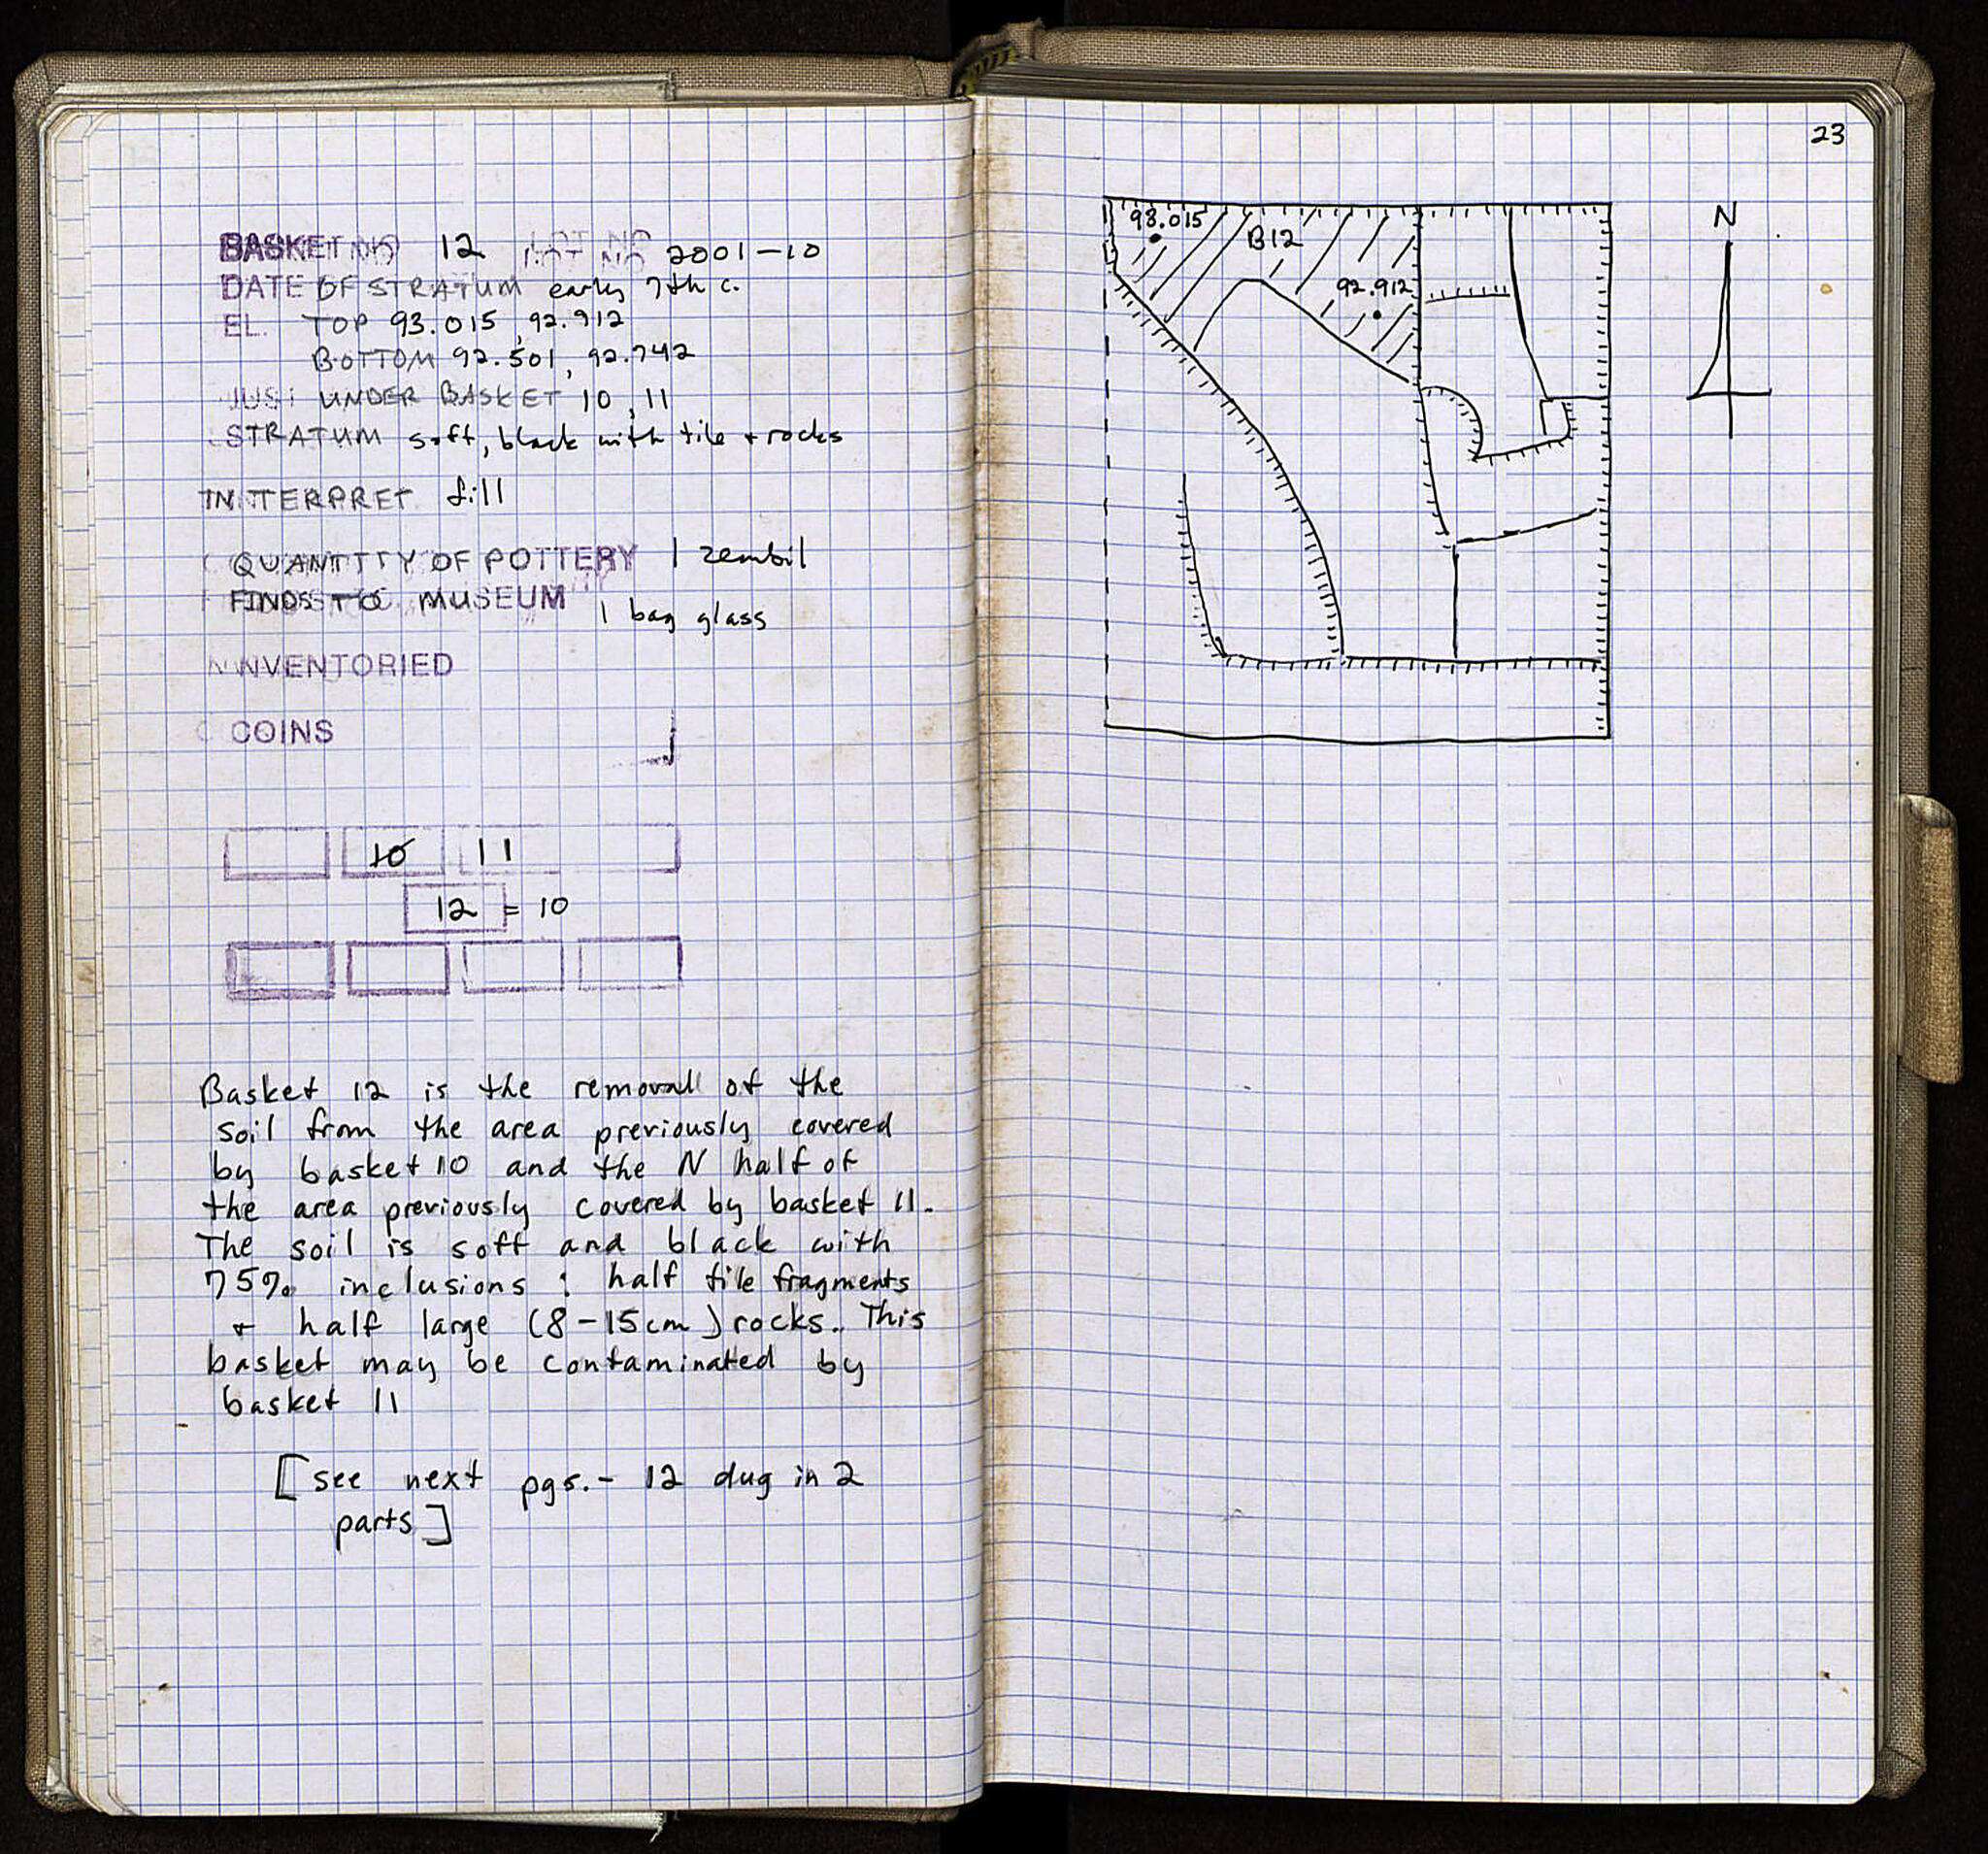 BASKET NO 12 LOT NO 2001-10
DATE OF STRATUM early 7th c.
EL. TOP 93.015, 92.912
BOTTOM 92.501, 92.742
JUST UNDER BASKET 10, 11
STRATUM soft, black with tile + rocks
INTERPRET fill
QUANTITY OF POTTERY 1 zembil
FINDS TO MUSEUM 1 bag glass
INVENTORIED
COINS
10 11
12 = 10
Basket 12 is the removall of the
soil from the area previously covered
by basket 10 and the N half of
the area previously covered by basket 11.
The soil is soft and black with
75% inclusions : half tile fragments
+ half large (8-15cm) rocks. This
basket may be contaminated by
basket 11
[see next pgs. - 12 dug in 2
parts]
23
93.015
B12
92.912
N